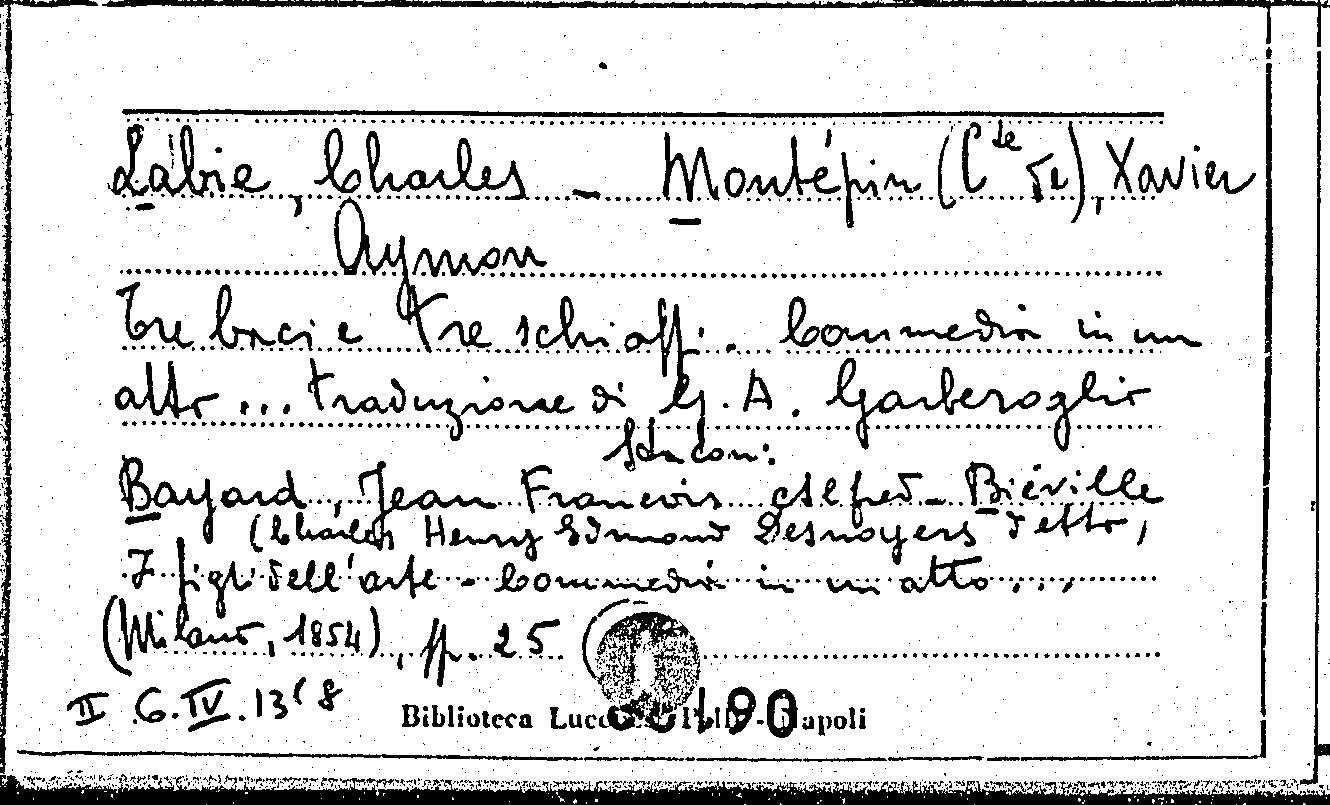 Labie, Charles - Montépin (C^te de), Xavier
Aymon
Tre baci e tre schiaffi. Commedia in un
atto ... traduzione di G. A. Garberoglio
Sta con:
Bayard, Jean Francois Alfred - Biéville
(Charles Henry Edmond Desnoyers detto,
I figli dell'arte - Commedia in un atto ...
(Milano, 1854), pp. 25 (
II G. IV. 13(8
Biblioteca Napoli